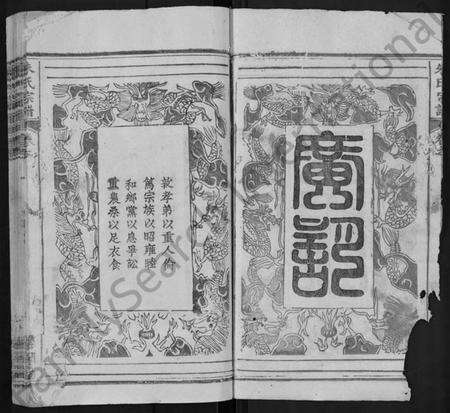 廣訓
敦孝弟以重人倫
篤宗族以昭雍睦
和鄉黨以息爭訟
重農桑以足衣食
FamilySearch International